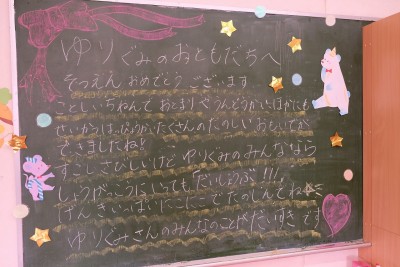 ゆりぐみのおともだちへ
そつえん おめでとう ございます
ことしいちねんで おとまりや うんどうかい
せいかつ たくさんの たのしい おもいでが
できましたね。
すこしさびしいけど ゆりぐみのみんななら
しょうがっこうに いっても「だいじょうぶ」!!!
げんきいっぱい にこにこで たのしんでね
ゆりぐみさんの みんなのことが だいすきです